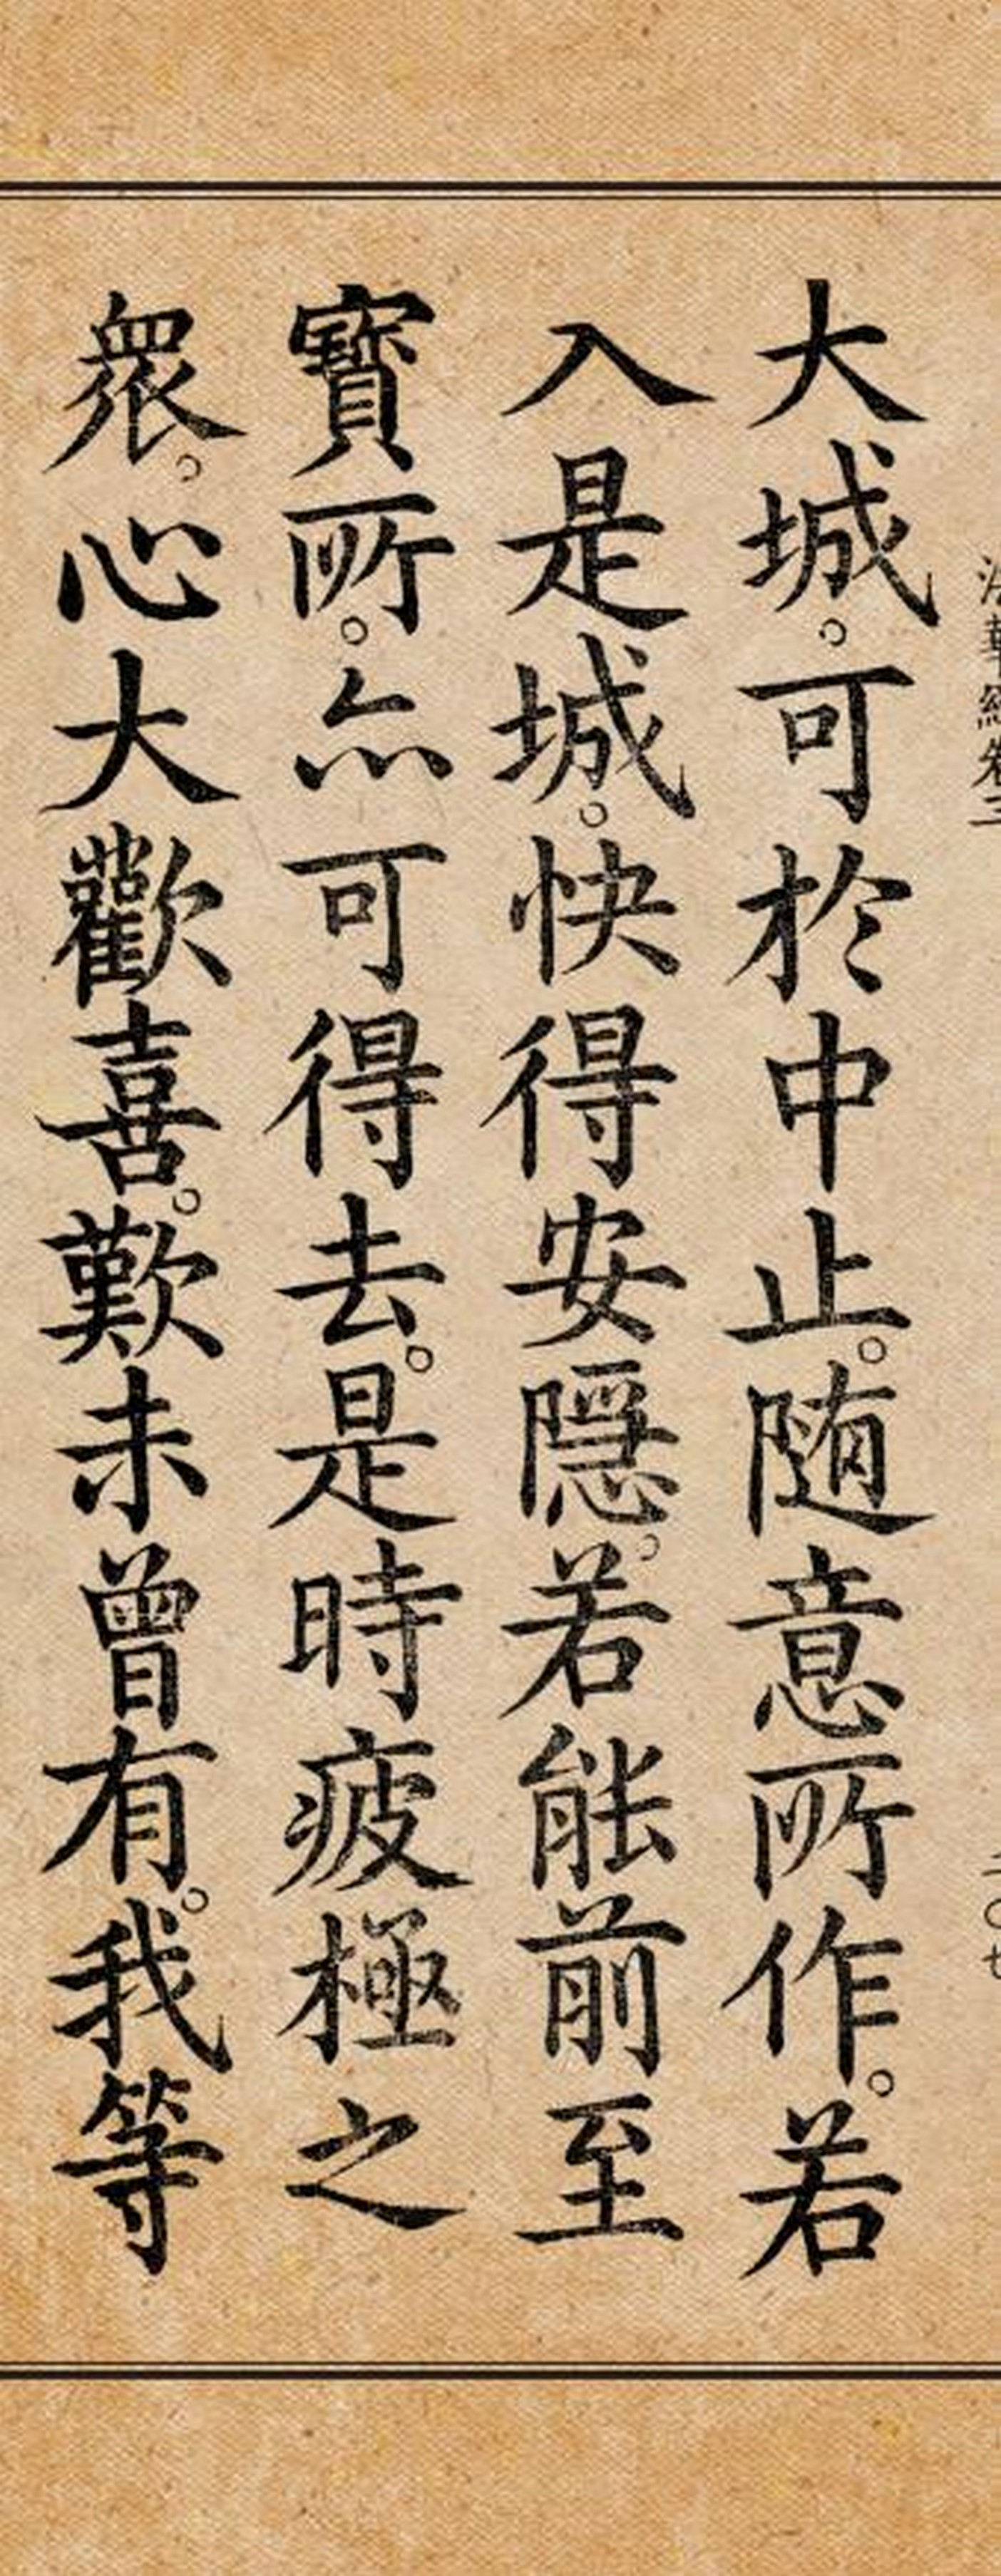 法華經卷三 二〇七
大城。可於中止。随意所作。若
入是城。快得安隱。若能前至
寶所。亦可得去。是時疲極之
衆。心大歡喜。歎未曾有。我等